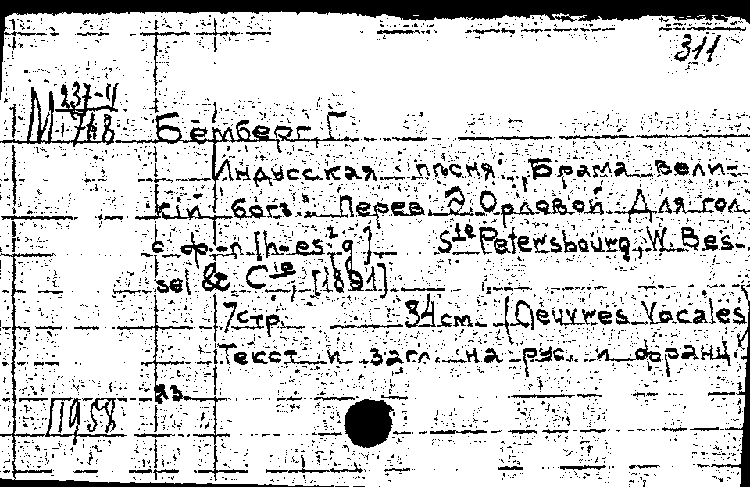 311
М 237-4
768
Бемберг, Г.
Индусская пѣсня „Брама вели-
кій богъ". Перев. Э. Орловой Для гол.
с ф.-п. [h-es.² g.] S-te Petersbourg, W. Bes-
sel & C-ie, [1891]
7 стр. 34 см. (Oeuvres Vocales)
Текст и загл. на рус. и франц.
яз.
П958